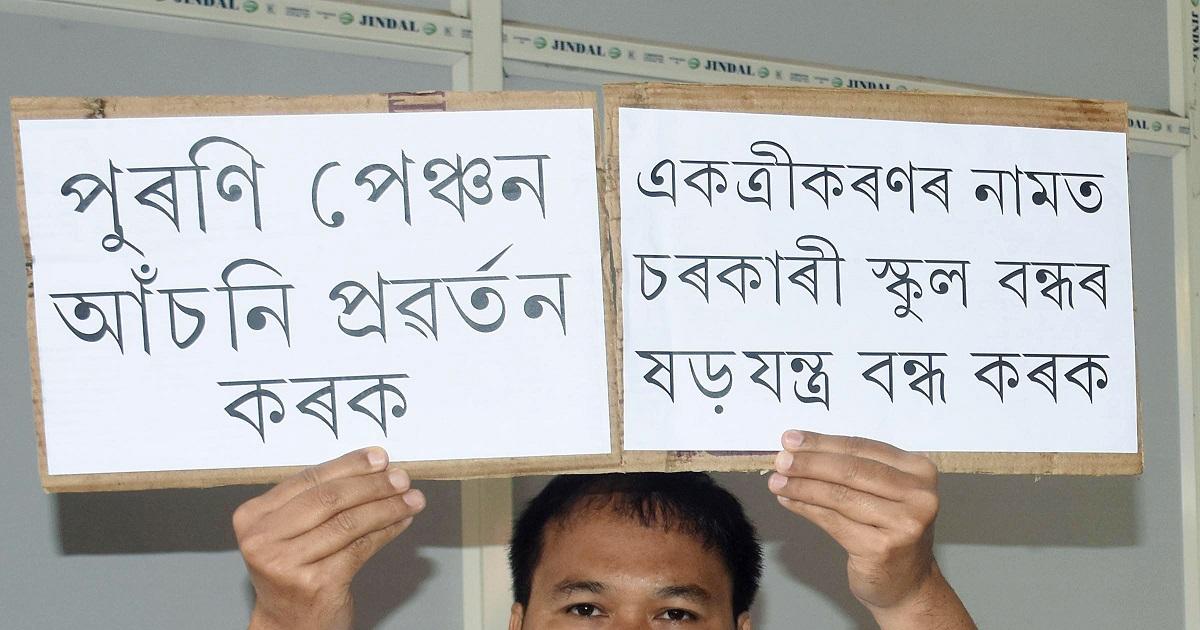 JINDAL JINDAL JINDAL JINDAL JINDAL
পুৰণি পেঞ্চন
আঁচনি প্ৰৱৰ্তন
কৰক
একত্ৰীকৰণৰ নামত
চৰকাৰী স্কুল বন্ধৰ
ষড়যন্ত্ৰ বন্ধ কৰক